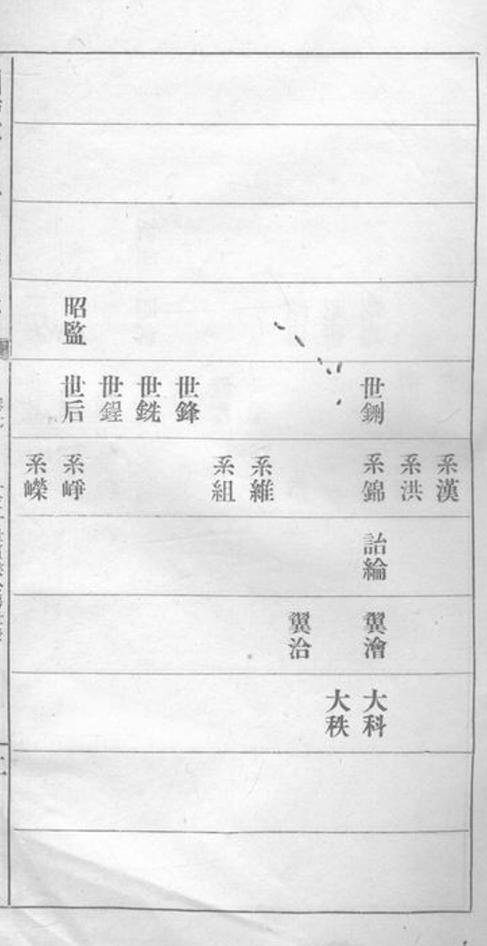 昭監
世鍘 世鋒 世銑 世鋥 世后
系漢 系洪 系錦 系維 系組 系崢 系嶸
詒綸
翼澮 翼治
大科 大秩